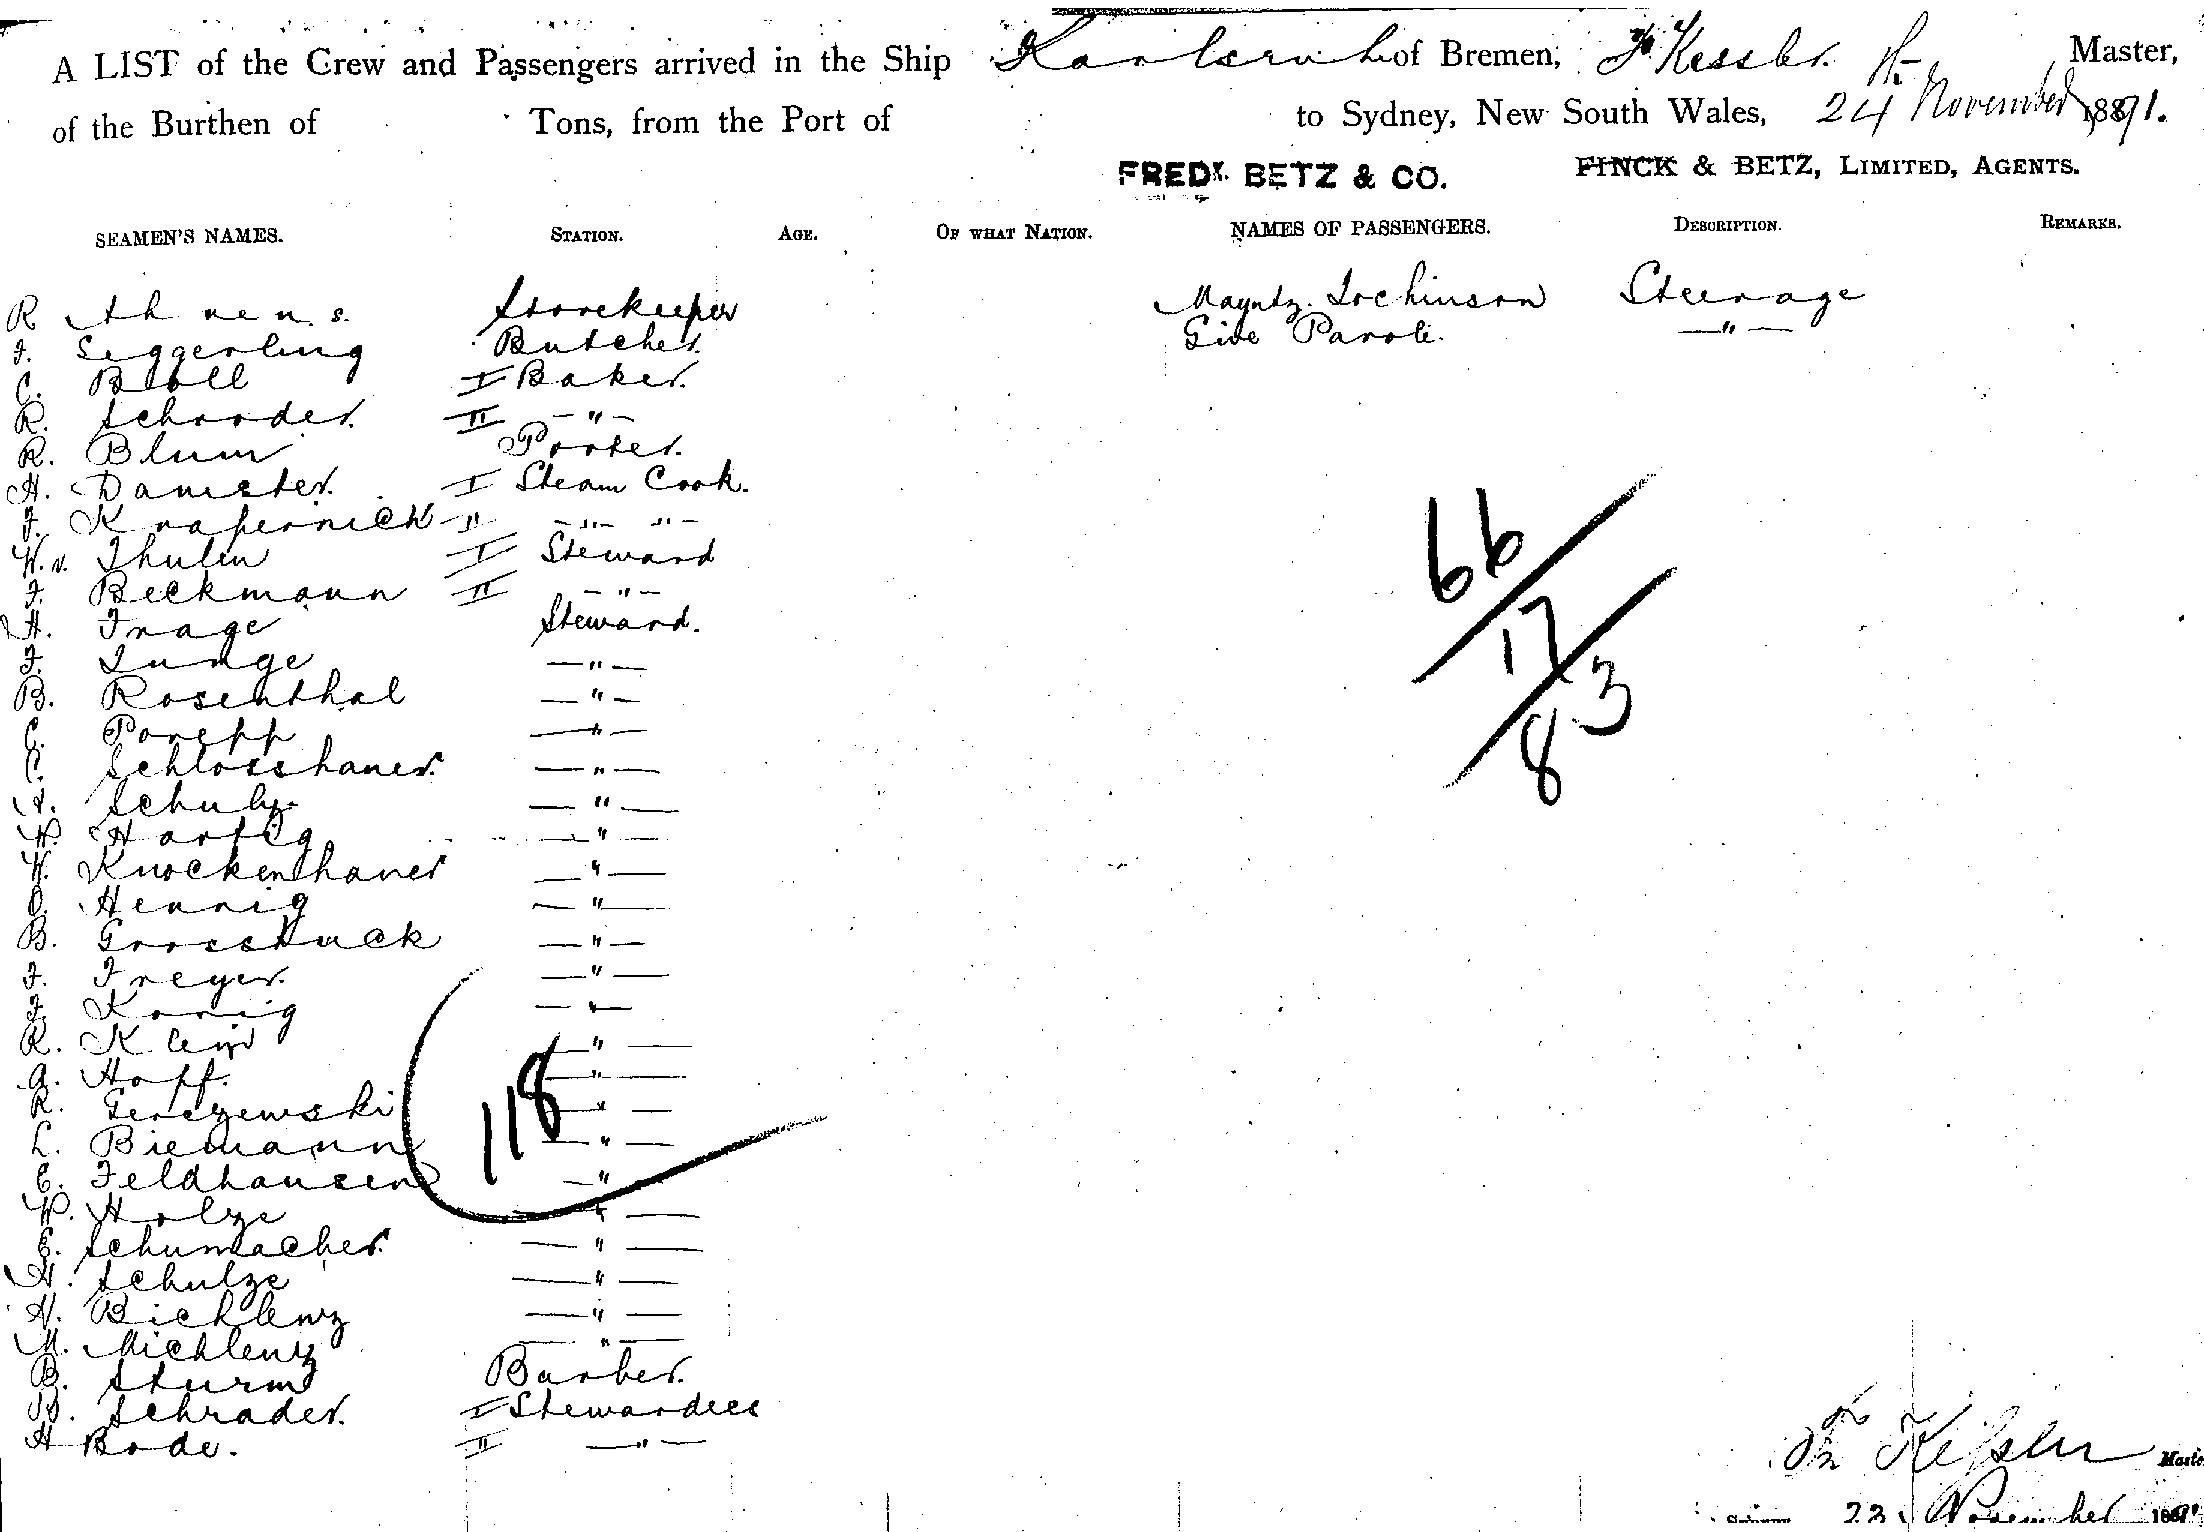 A LIST of the Crew and Passengers arrived in the Ship Karlsruh of Bremen, Fr Kessler. Master,
of the Burthen of Tons, from the Port of to Sydney, New South Wales, 24 November 1891.
FREDK. BETZ & CO. FINCK & BETZ, LIMITED, AGENTS.
SEAMEN'S NAMES. STATION. AGE. OF WHAT NATION. NAMES OF PASSENGERS. DESCRIPTION. REMARKS.
R Ahrens. Storekeeper Mayntz. Steerage
F. Seggerling Butcher. Paroli. — " —
C. I Baker.
R. Schroder. II — " —
R. Blum Porter.
H. Damster. I Steam Cook.
F. Knapernick II — " — " —
W. v. Thulen I Steward
F. Beckmann II — " —
H. Frage Steward.
F. Junge — " —
B. Rosenthal — " —
C. Porepp — " —
C. Schlosshauer. — " —
A. Schulz. — " —
W. Hartig — " —
W. Knockenhauer — " —
O. Hennig — " —
B. Grosskuck — " —
F. Freyer. — " —
F. Konig — " —
R. Klein — " —
A. Hopf. — " —
R. Gerczewski — " —
L. Biemann — " —
E. Feldhausen — " —
W. Holze — " —
E. Schumacher. — " —
H. Schulze — " —
H. Bicklenz — " —
M. Michlenz — " —
B. Sturm Barber.
D. Schrader. I Stewardess
H Bode. II — " —
66
17
83
118
Fr Kessler Master
Sydney 23 November 1891